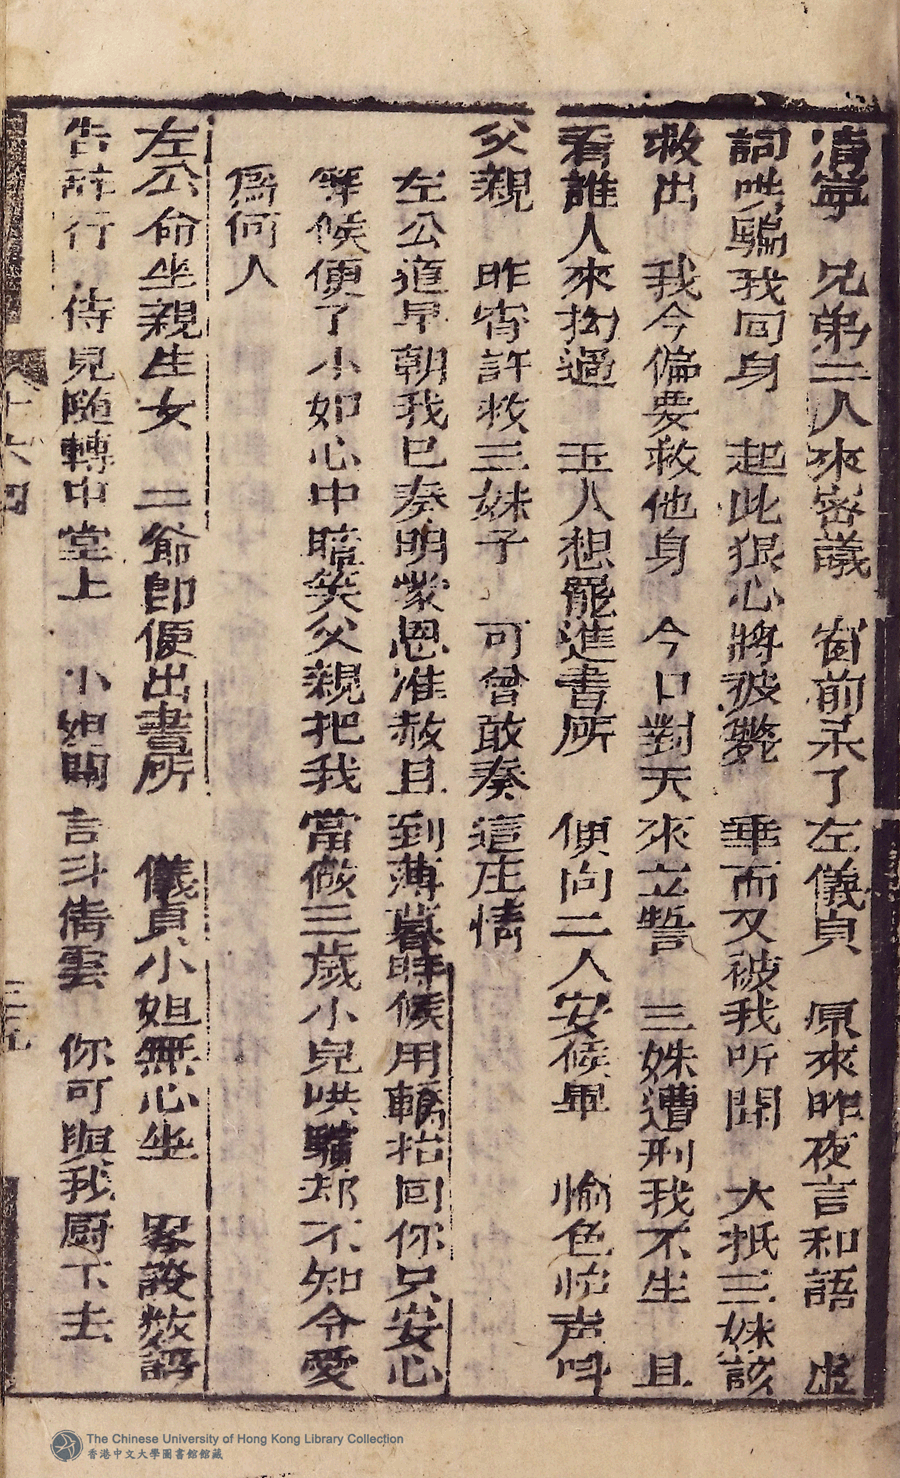 清寧　兄弟二人來密議　窗前呆了左儀貞　原來昨夜言和語　虛
詞哄騙我回身　起此狠心將彼斃　垂而又被我听聞　大抵三妹該
救出　我今偏要救他身　今日對天來立誓　三姝遭刑我不生　且
看誰人來拗過　玉人想罷進書所　便向二人安候畢　愉色怡声叫
父親　昨宵許救三妹子　可曾敢奏這庄情
左公道早朝我已奏明蒙恩准赦且到薄暮時候用轎抬回你只安心
等候便了小如心中暗笑父親把我當做三歲小兒哄騙却不知令愛
爲何人
左公命坐親生女　二爺即便出書所　儀貞小姐無心坐　畧談数語
告辞行　侍児随轉中堂上　小姐開言斗倩雲　你可與我厨下去
十六回
三五
The Chinese University of Hong Kong Library Collection
香港中文大學圖書館館藏